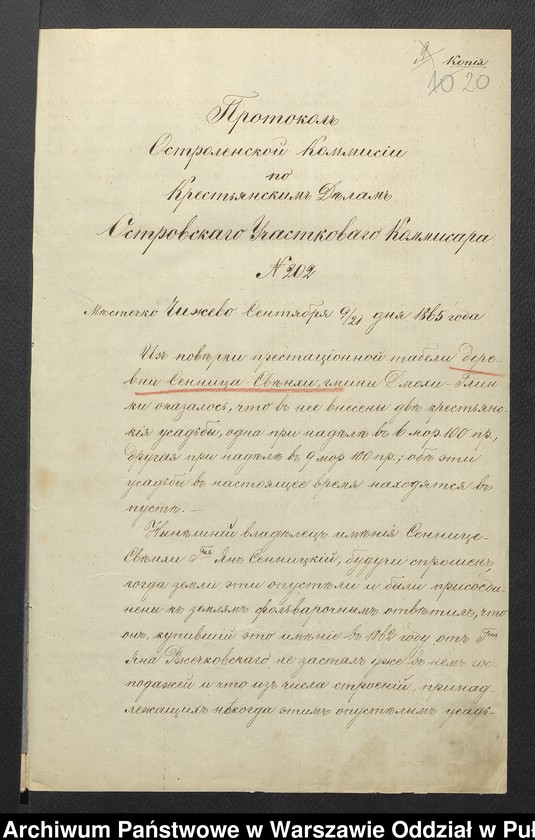 Копія
10 20
Протоколъ
Остроленской Коммисіи
по
Крестьянскимъ Дѣламъ
Островскаго Участковаго Коммисара
№ 202
Мѣстечко Чижево Сентября 9/21 дня 1865 года
Изъ повѣрки престаціонной табели дере-
вни Сенница-Свѣнхи, гмины Дмохи-Глин-
ки оказалось, что въ нее внесены двѣ крестьянс-
кія усадьбы, одна при надѣлѣ въ 6 мор. 100 пр.,
другая при надѣлѣ въ 9 мор 100 пр.; обѣ эти
усадьбы въ настоящее время находятся въ
пустѣ. —
Нынѣшній владѣлецъ имѣнія Сеннице-
Свѣнхи Гнъ Янъ Сенницкій, будучи спрошенъ,
когда земли эти опустѣли и были присоеди-
нены къ землямъ фольварочнымъ отвѣтилъ, что
онъ, купившій это имѣніе въ 1862 году отъ Гна
Яна не засталъ уже въ немъ гос-
подажей и что изъ числа строеній, принад-
лежащихъ нѣкогда этимъ опустѣлымъ усадь-
Archiwum Państwowe w Warszawie Oddział w Puł